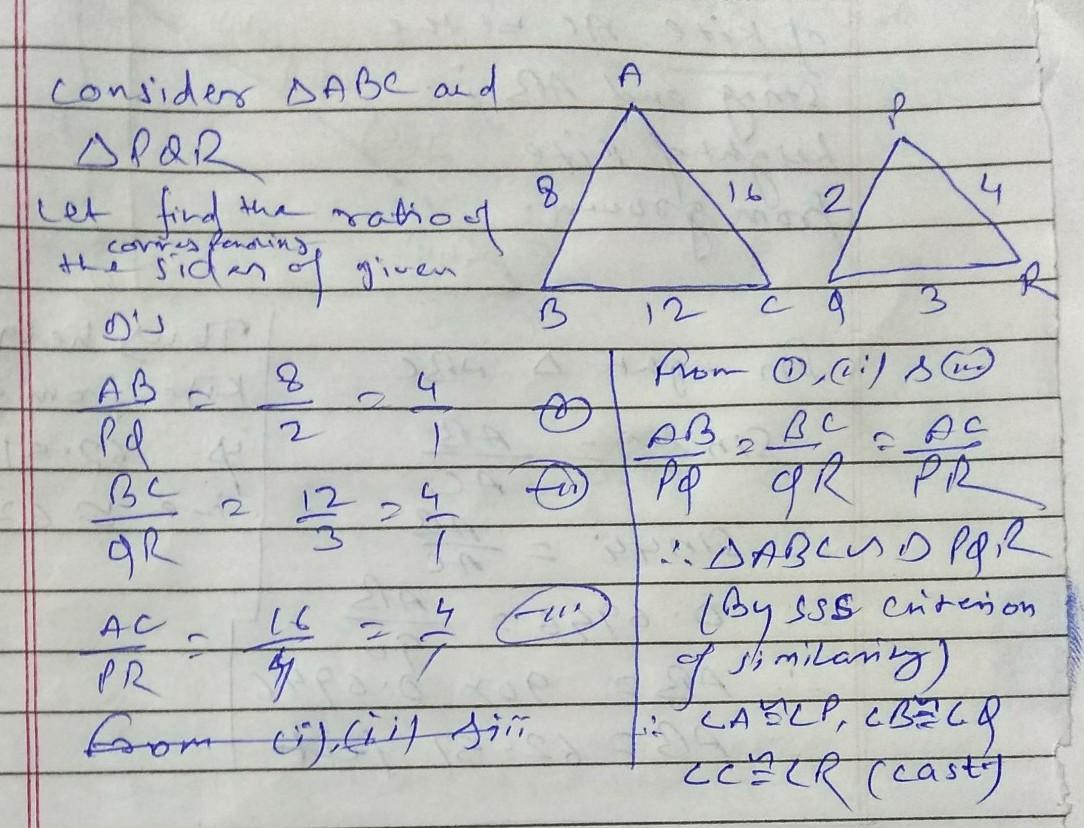 Consider ΔABC and
ΔPQR
Let find the ratio of
corresponding
the sides of given
Δ's
A
8
16
B
12
C
P
2
4
Q
3
R
AB/PQ = 8/2 = 4/1 —(i)
BC/QR = 12/3 = 4/1 —(ii)
AC/PR = 16/4 = 4/1 —(iii)
from (i), (ii) & iii
from (i), (ii) & (iii)
AB/PQ = BC/QR = AC/PR
∴ ΔABC ~ Δ PQR
(By SSS criterion
of similarity)
∴ ∠A≅∠P, ∠B≅∠Q
∠C≅∠R (cast)